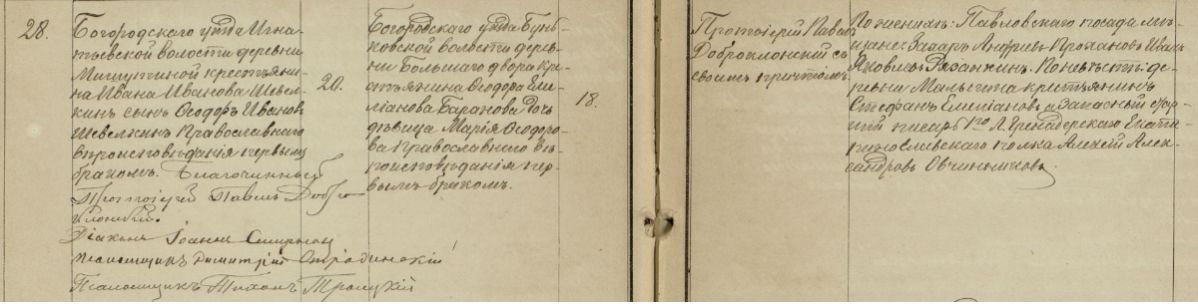 28.
Богородскаго уѣзда Игна-
тьевской волости деревни
Мишутиной крестьяни-
на Ивана Иванова Шевел-
кинъ сынъ Ѳеодоръ Ивановъ
Шевелкинъ Православнаго
вѣроисповѣданія первымъ
бракомъ. Благочинный
Протоіерей Павелъ Добро-
клонскій.
Діаконъ Іоаннъ Смирнов
Псаломщикъ Димитрій
Псаломщикъ Тихонъ Троицкій
20.
Богородскаго уѣзда Бунь-
ковской волости дерев-
ни Большаго двора кре-
стьянина Ѳеодора Еми-
ліанова Баранова дочь
дѣвица Марія Ѳеодоро-
ва Православнаго вѣ-
роисповѣданія пер-
вымъ бракомъ.
18.
Протоіерей Павелъ
Доброклонскій съ
своимъ причтомъ.
По женихѣ: Павловскаго посада мѣ-
щане: Захаръ Андреевъ Прохановъ Иванъ
Яковлевъ Рязанкинъ. По невѣстѣ: де-
ревни крестьянинъ
Стефанъ Емиліановъ, а Запасный
писарь 1го Л. Гренадерскаго Екате-
ринославскаго полка Алексѣй Алек-
сандровъ Овчинниковъ.